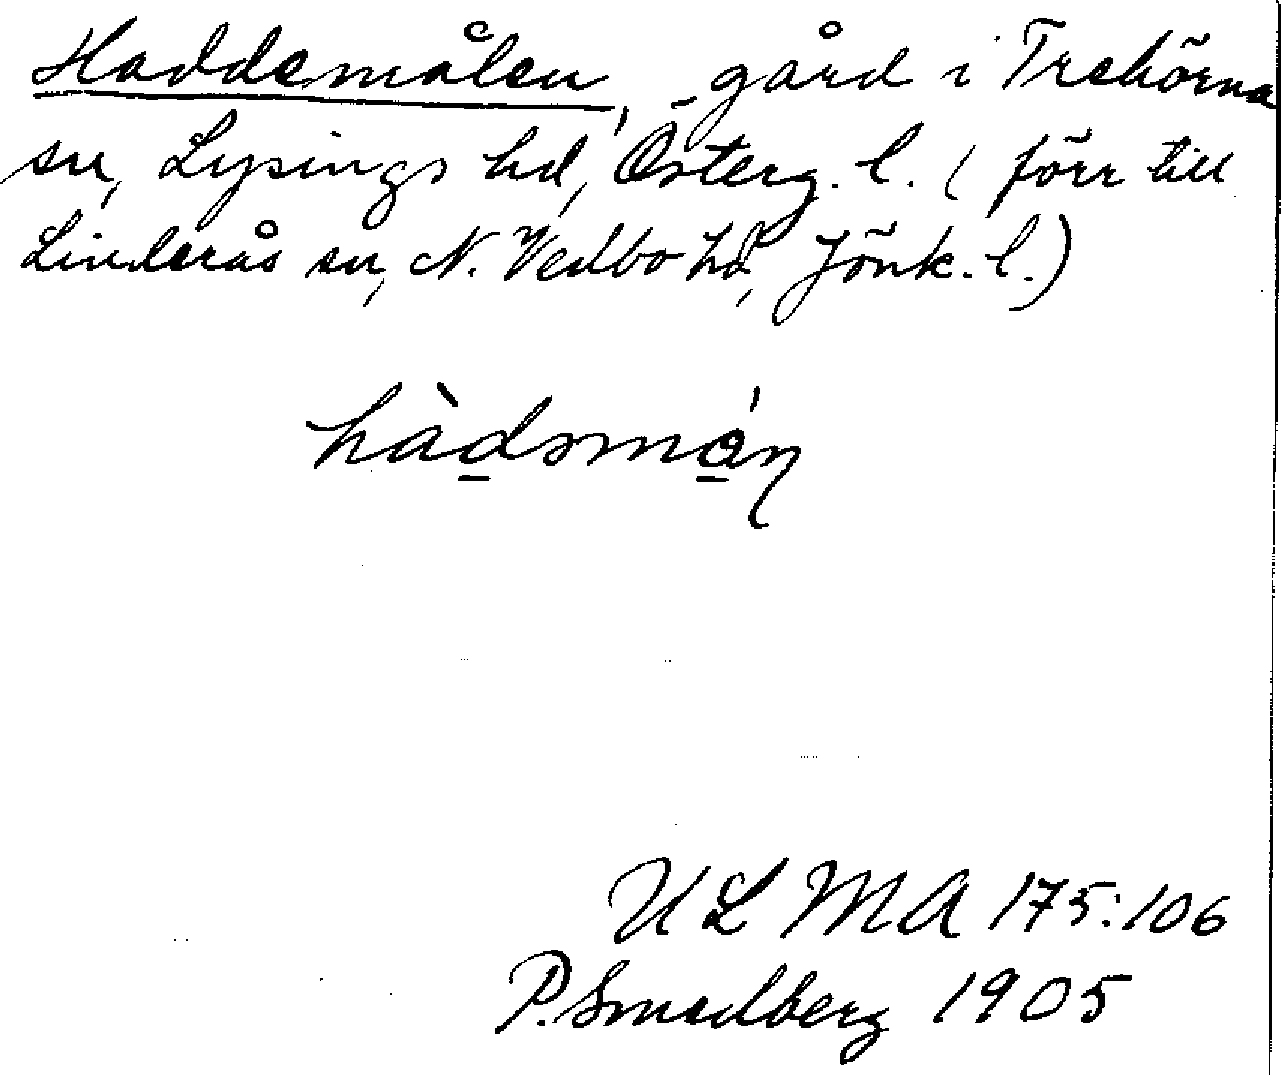 Haddemålen, gård i Trehörna
sn, Lysings hd, Österg. l. (förr till
Linderås sn, N. Vedbo hd, Jönk. l.)
ULMA 175:106
P. Smedberg 1905